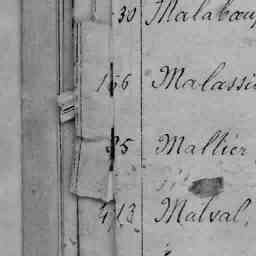 30 Malabouq
156 Malassi
35 Mallier
413 Malval,